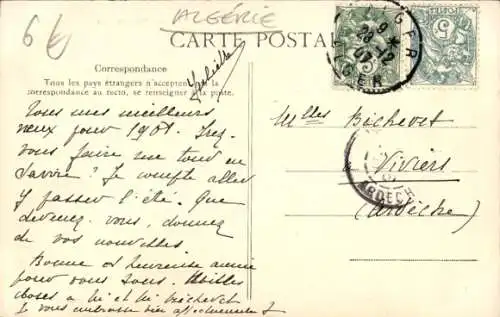 6€
ALGÉRIE
CARTE POSTALE
Correspondance
Tous les pays étrangers n'acceptent pas la
correspondance au recto, se renseigner à la poste.
Juliette
ALGER
9
28-12
07
ALGER
5
POSTES
5
Tous mes meilleurs
vœux pour 1908. Irez-
vous faire un tour en
Savoie ? Je compte aller
y passer l'été. Que
devenez-vous, donnez
de vos nouvelles.
Bonne et heureuse année
pour vous tous. Milles
choses à
Je vous embrasse bien affectueusement
Mlles Bochevet
à Viviers
(Ardèche)
ARDECH